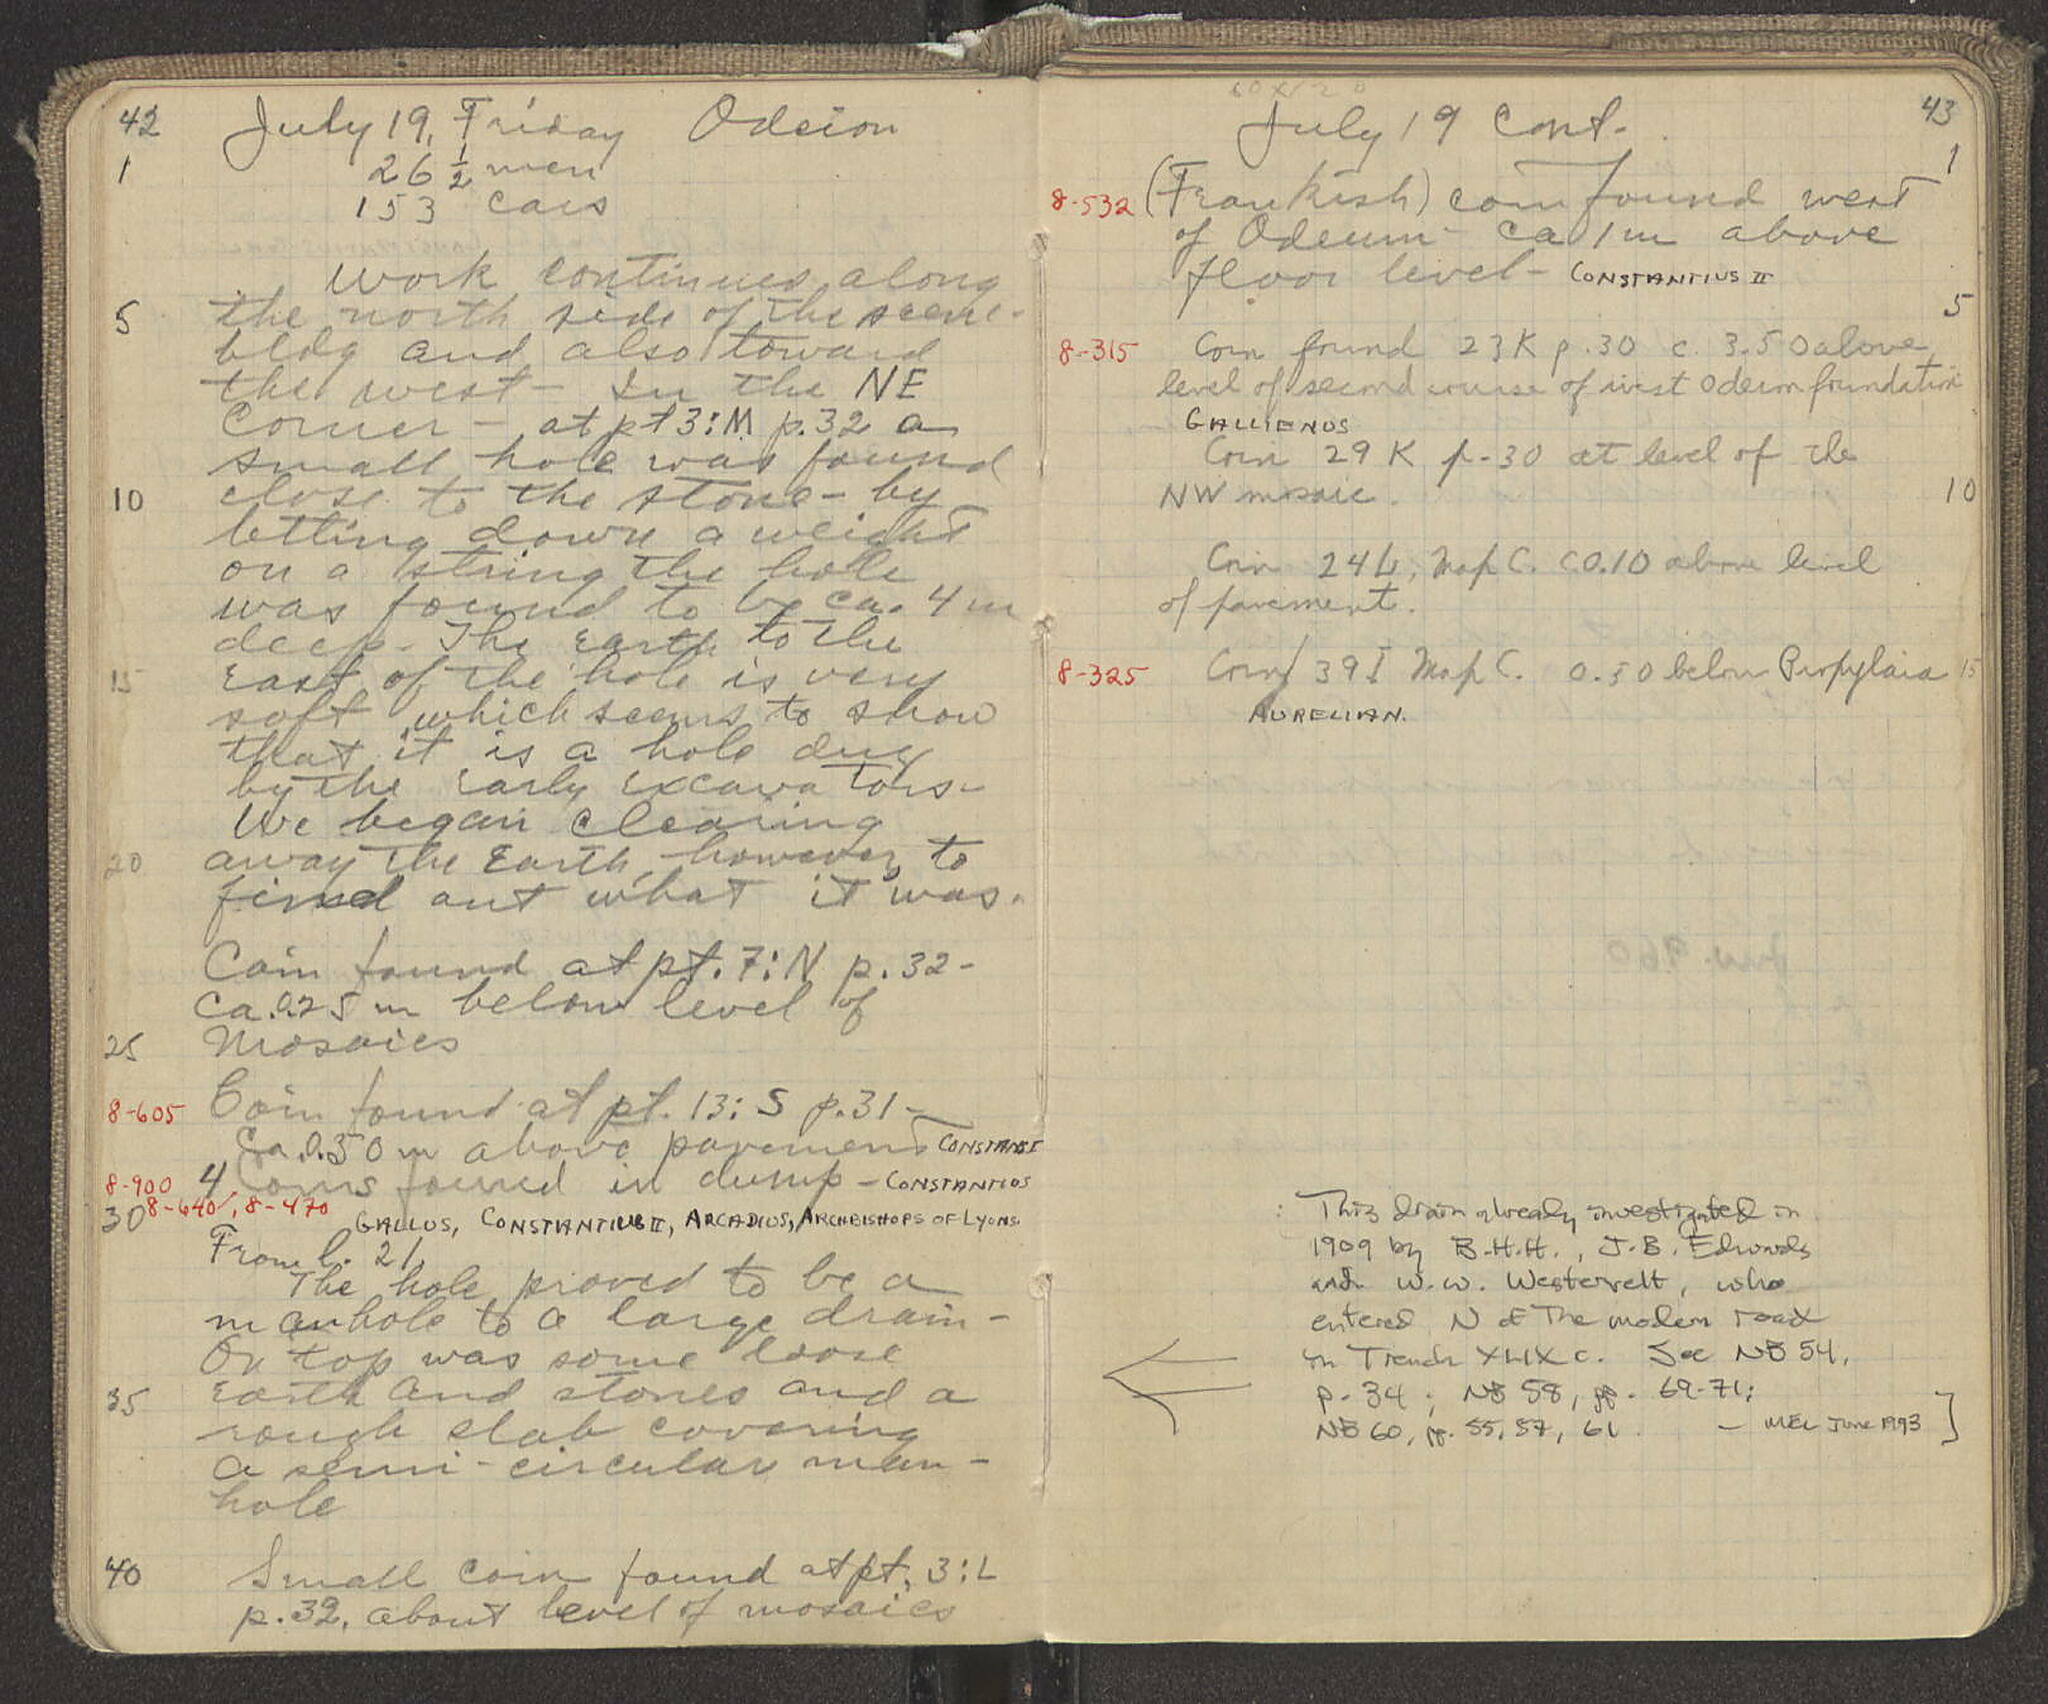 42 July 19, Friday Odeion
1 26 1/2 men
153 cars
Work continues along
5 the north side of the scene-
bldg and also toward
the west - In the NE
Corner - at pt 3:M p.32 a
small hole was found
10 close to the stone - by
letting down a weight
on a string the hole
was found to be ca. 4 m
deep. The earth to the
15 east of the hole is very
soft which seems to show
that it is a hole dug
by the early excavators -
We began clearing
20 away the earth, however, to
find out what it was.
Coin found at pt. 7:N p.32 -
Ca. 0.25 m below level of
25 Mosaics
8-605 Coin found at pt. 13:S p.31 -
Ca. 0.50 m above pavement CONSTANS I
8-900 4 Coins found in dump - CONSTANTIUS
30 8-640, 8-470 GALLUS, CONSTANTIUS II, ARCADIUS, ARCHBISHOPS OF LYONS.
From l. 21,
The hole proved to be a
manhole to a large drain -
On top was some loose
35 earth and stones and a
rough slab covering
a semi-circular man-
hole
40 Small coin found at pt. 3:L
p.32. about level of mosaics
60 X 120
July 19 Cont. 43
1
8-532 (Frankish) coin found west
of Odeum - ca 1 m above
floor level - CONSTANTIUS II
5
8-315 Coin found 23 K p.30 c. 3.50 above
level of second course of west Odeum foundation
GALLIENUS
Coin 29 K p-30 at level of the
NW mosaic. 10
Coin 24 L, Map C. c 0.10 above level
of pavement.
8-325 Coin 39 I Map C. 0.50 below Propylaia 15
AURELIAN.
: This drain already investigated in
1909 by B.H.H., J.B. Edwards
and W.W. Westervelt, who
entered N of the modern road
in Trench XLIX c. See NB 54,
p. 34; NB 58, pp. 69-71;
NB 60, pp. 55, 57, 61. - MEL June 1993]